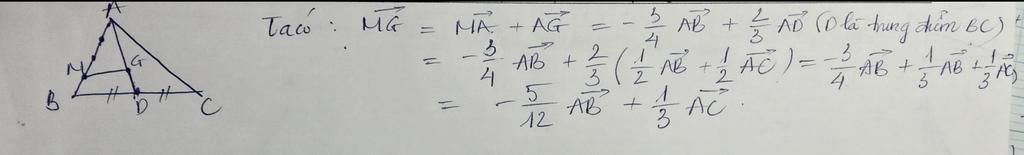 A
M
G
B
D
C
Ta có : MG = MA + AG = - 3/4 AB + 2/3 AD (D là trung điểm BC)
= - 3/4 AB + 2/3 ( 1/2 AB + 1/2 AC ) = - 3/4 AB + 1/3 AB + 1/3 AC
= - 5/12 AB + 1/3 AC .